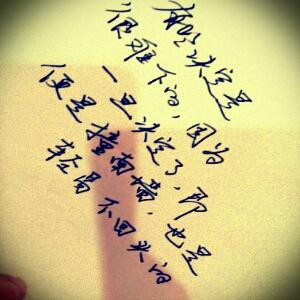 有些决定是
很难下的，因为
一旦决定了，即
便是撞南墙，也是
轻易不回头的